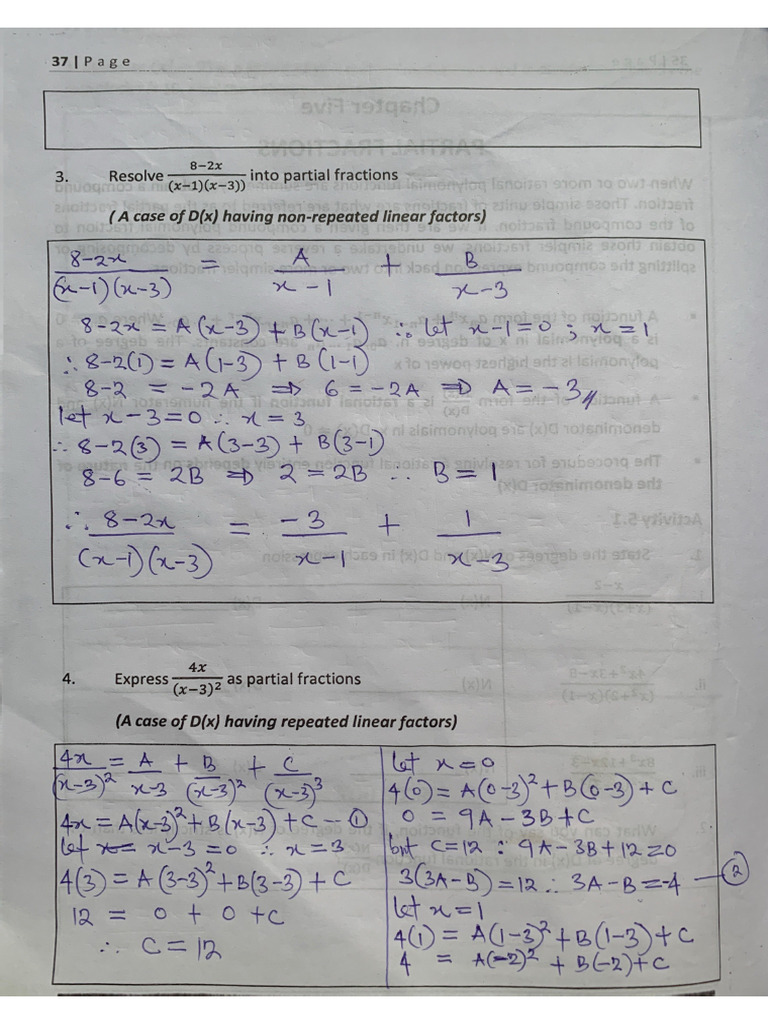 37 | Page
3. Resolve (8−2x)/((x−1)(x−3)) into partial fractions
( A case of D(x) having non-repeated linear factors)
(8−2x)/((x−1)(x−3)) = A/(x−1) + B/(x−3)
8−2x = A(x−3) + B(x−1) ∴ let x−1=0 ; x=1
∴ 8−2(1) = A(1−3) + B(1−1)
8−2 = −2A ⇒ 6 = −2A ⇒ A = −3
let x−3=0 ∴ x=3
∴ 8−2(3) = A(3−3) + B(3−1)
8−6 = 2B ⇒ 2 = 2B ∴ B = 1
∴ (8−2x)/((x−1)(x−3)) = −3/(x−1) + 1/(x−3)
4. Express 4x/(x−3)² as partial fractions
(A case of D(x) having repeated linear factors)
4x/(x−3)² = A/(x−3) + B/(x−3)² + C/(x−3)³
4x = A(x−3)² + B(x−3) + C — ①
let x= x−3=0 ∴ x=3
4(3) = A(3−3)² + B(3−3) + C
12 = 0 + 0 + C
∴ C = 12
let x=0
4(0) = A(0−3)² + B(0−3) + C
0 = 9A − 3B + C
but C=12 ∴ 9A − 3B + 12 = 0
3(3A−B) = 12 ∴ 3A−B = −4 — ②
let x=1
4(1) = A(1−3)² + B(1−3) + C
4 = A(−2)² + B(−2) + C